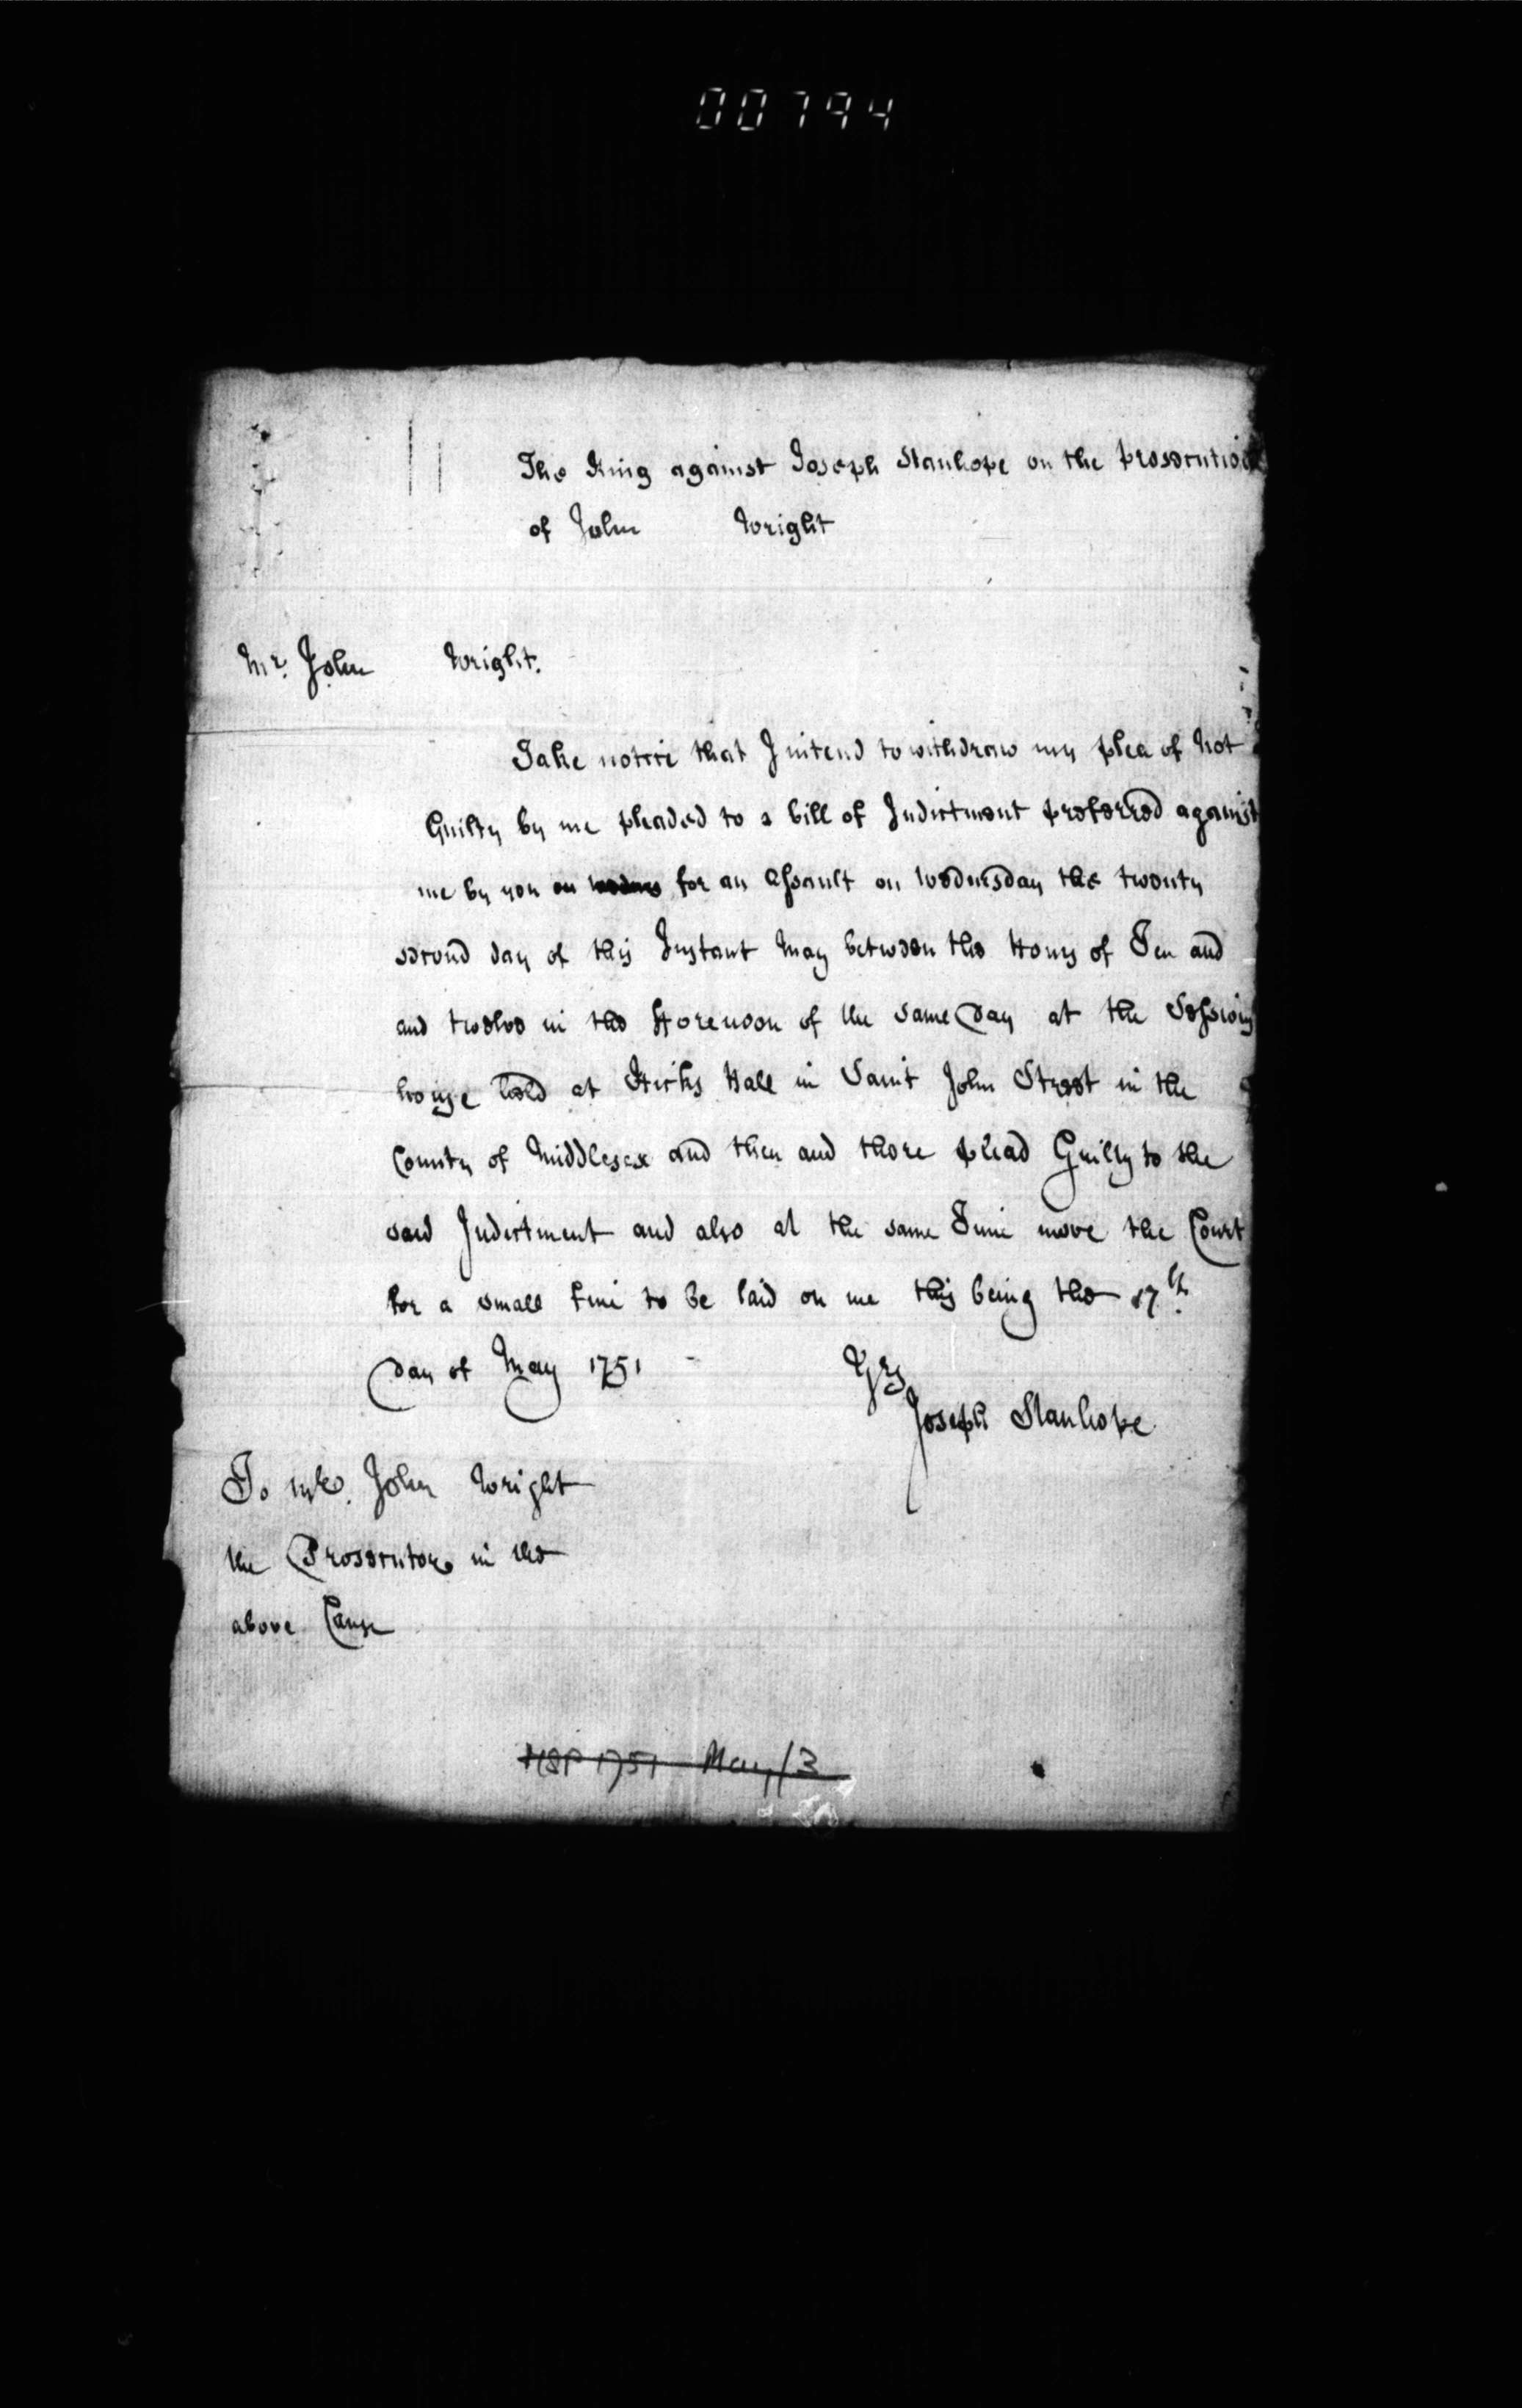 00794
The King against Joseph Stanhope on the prosecution
of John Wright
Mr. John Wright.
Take notice that I intend to withdraw my plea of Not
Guilty by me pleaded to a bill of Indictment preferred against
me by you on for an Assault on Wednesday the twenty
second day of this Instant May between the Hours of Ten and
and twelve in the Forenoon of the same Day at the Sessions
house held at Hicks Hall in Saint John Street in the
County of Middlesex and then and there plead Guilty to the
said Indictment and also at the same Time move the Court
for a small fine to be laid on me this being the 17th.
Day of May 1751 -
Yrs
Joseph Stanhope
To Mr. John Wright
the Prosecutor in the
above Cause
MSP 1751 May/3